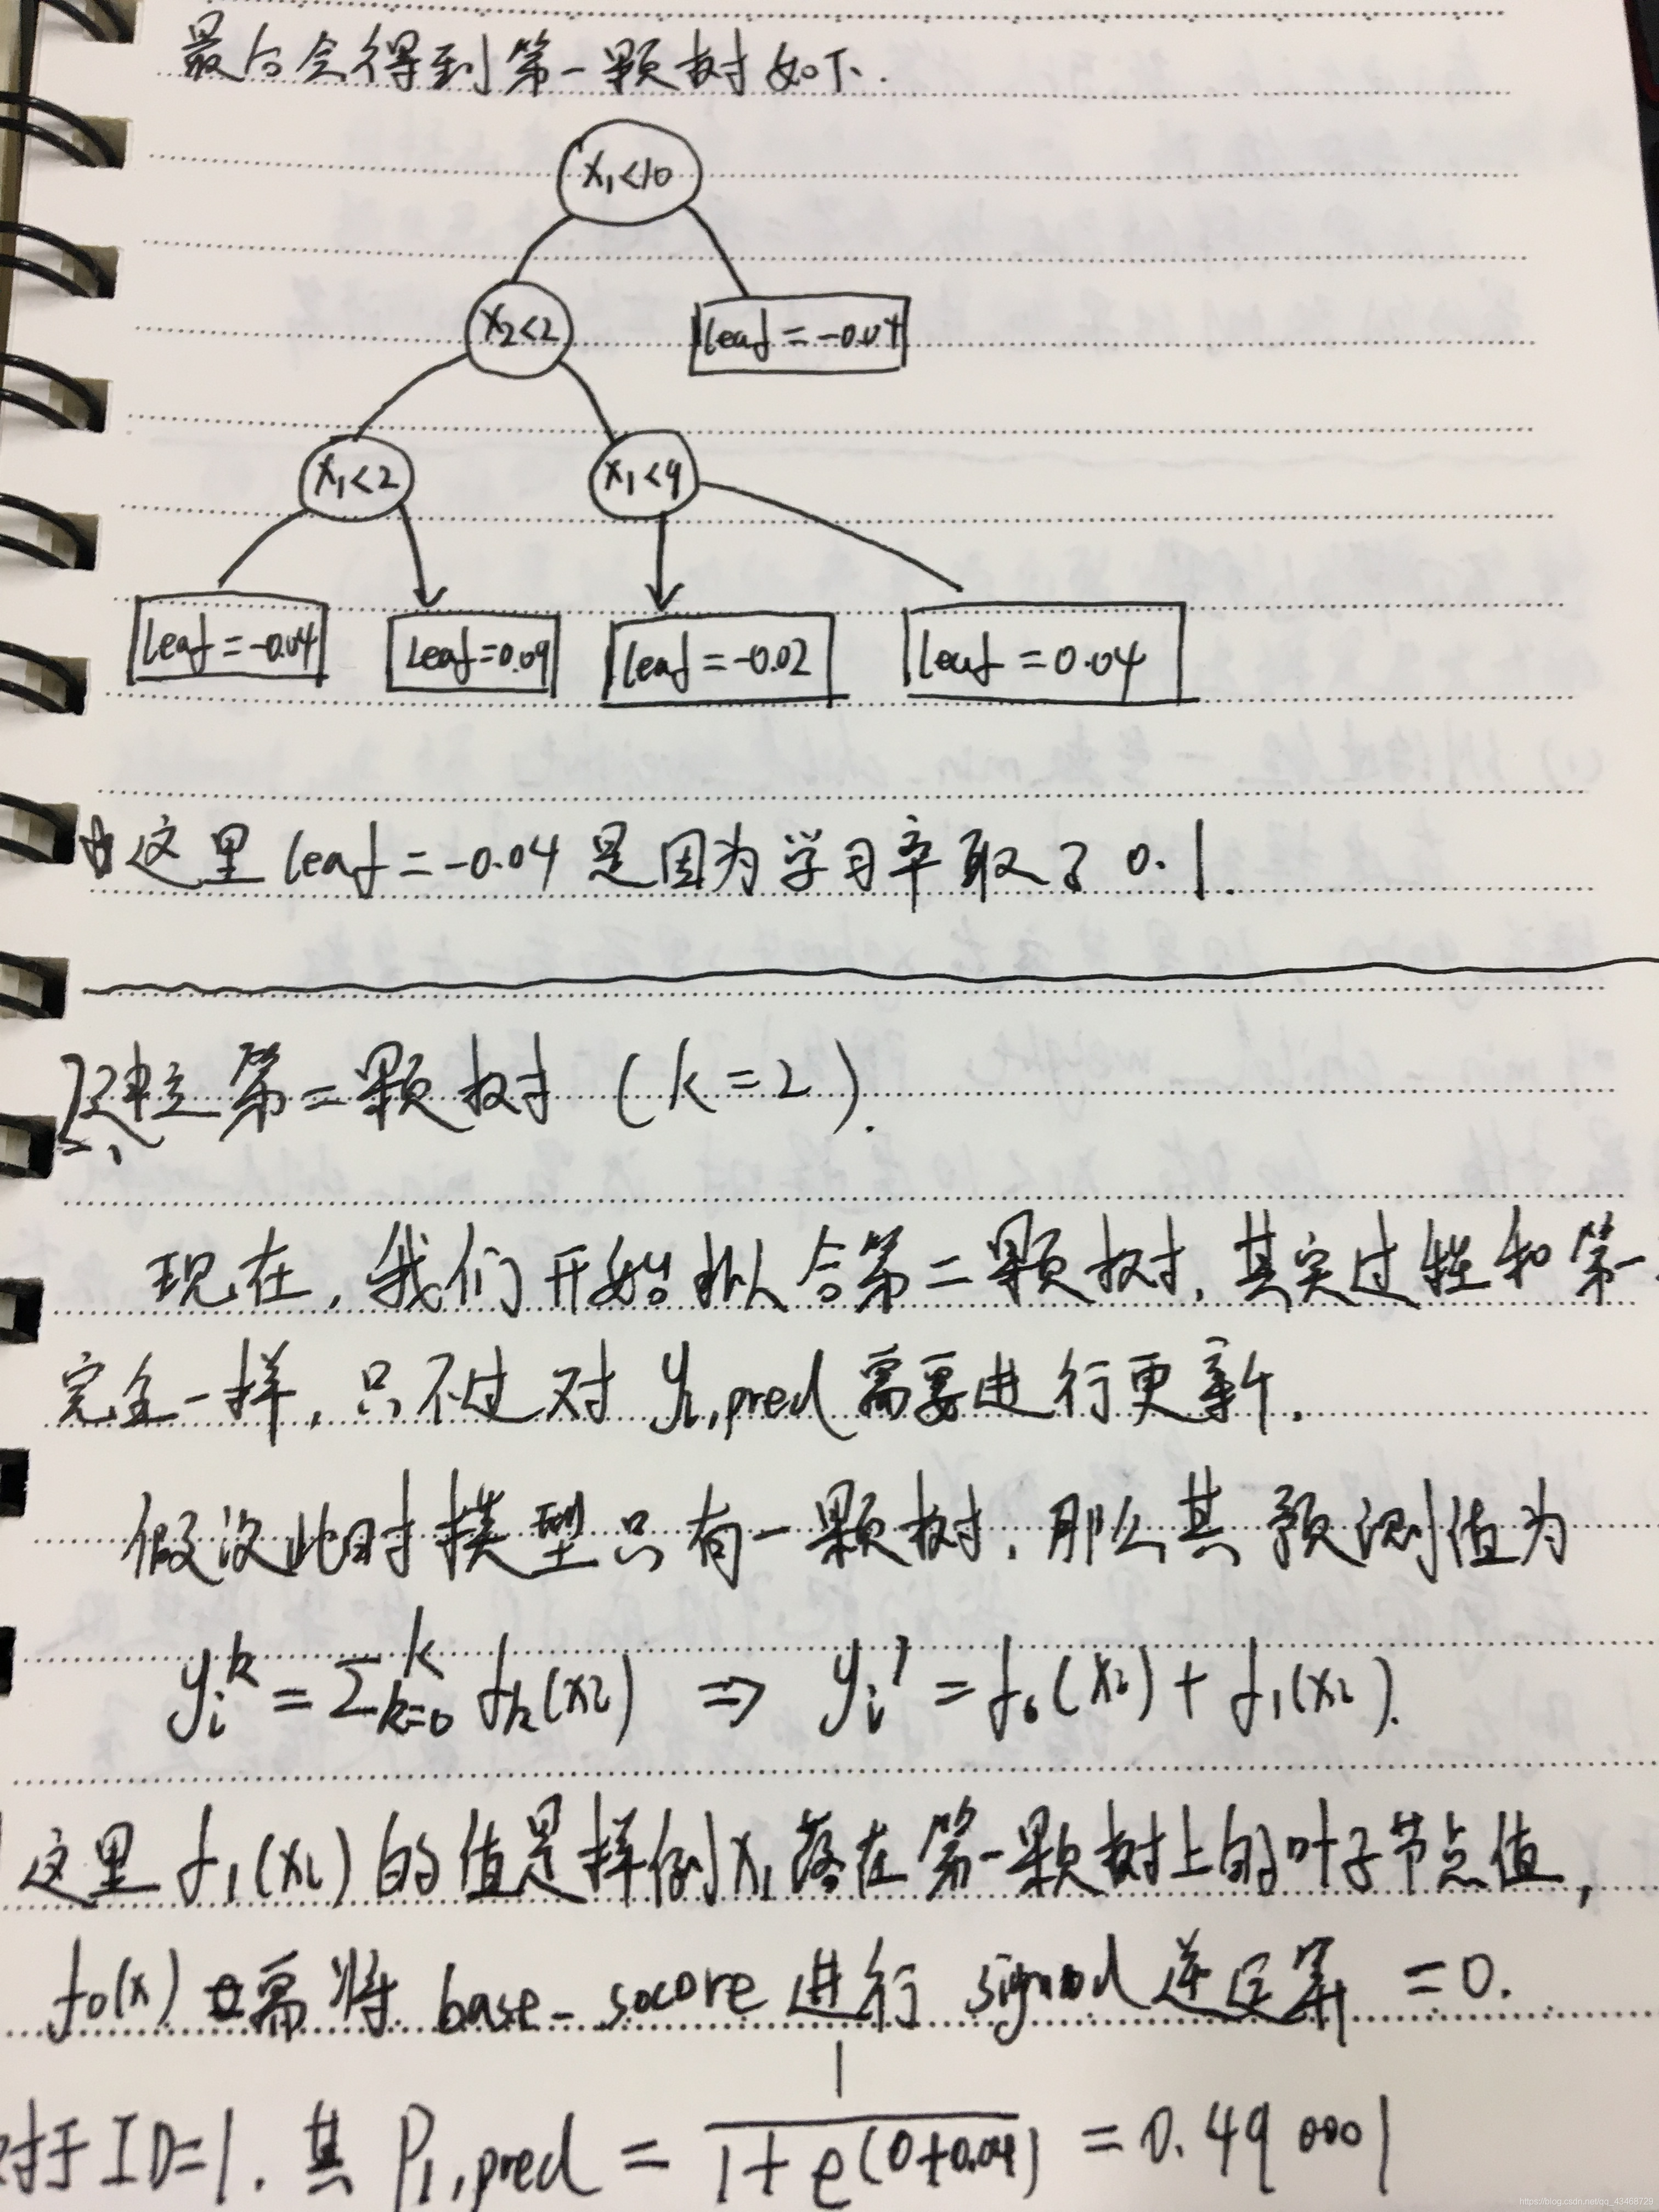 最后会得到第一颗树如下.
x₁<10
x₂<2
leaf = -0.04
x₁<2
x₁<9
leaf = -0.04
leaf = 0.09
leaf = -0.02
leaf = 0.04
这里 leaf = -0.04 是因为学习率取了 0.1.
建立第二颗树 (k=2).
现在, 我们开始拟合第二颗树, 其实过程和第一
完全一样, 只不过对 yᵢ,pred 需要进行更新.
假设此时模型只有一颗树, 那么其预测值为
yᵢᵏ = Σᴷₖ₌₀ fₖ(xᵢ) ⇒ yᵢ¹ = f₀(xᵢ) + f₁(xᵢ).
这里 f₁(xᵢ) 的值是样例x₁落在第一颗树上的叶子节点值,
f₀(x) 需将 base_socore 进行 sigmod 逆运算 = 0.
对于 ID=1. 其 P₁,pred = 1/(1+e^(0+0.04)) = 0.490001
https://blog.csdn.net/qq_43468729